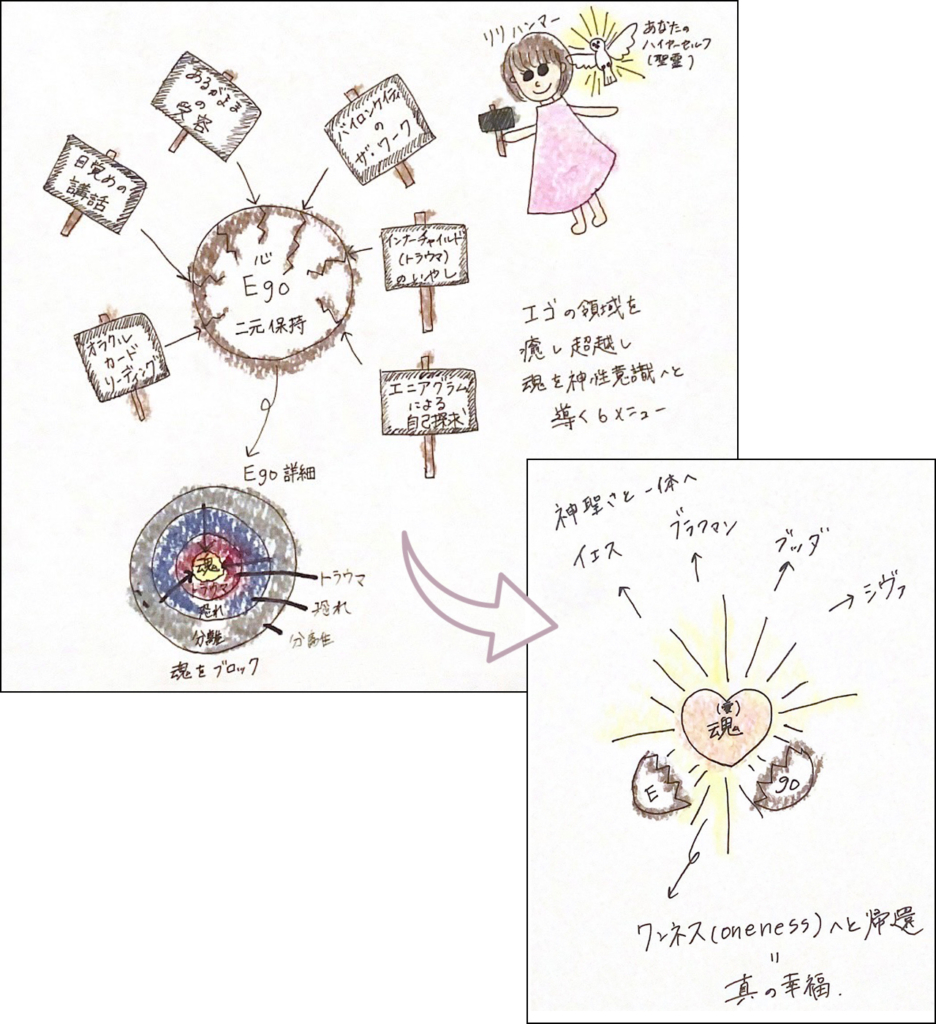 リリハンマー
あなたの
ハイヤーセルフ
(聖霊)
あるがまま
の
受容
バイロンケイティ
の
ザ・ワーク
目覚めの
講話
インナーチャイルド
(トラウマ)
のいやし
心
Ego
二元保持
オラクル
カード
リーディング
エニアグラム
による
自己探求
エゴの領域を
癒し超越し
魂を神性意識へと
導く6メニュー
Ego詳細
魂
トラウマ
恐れ
分離
トラウマ
恐れ
分離
魂をブロック
神聖さと一体へ
イエス
ブラフマン
ブッダ
シヴァ
(愛)
魂
E
go
ワンネス(oneness)へと帰還
=
真の幸福.